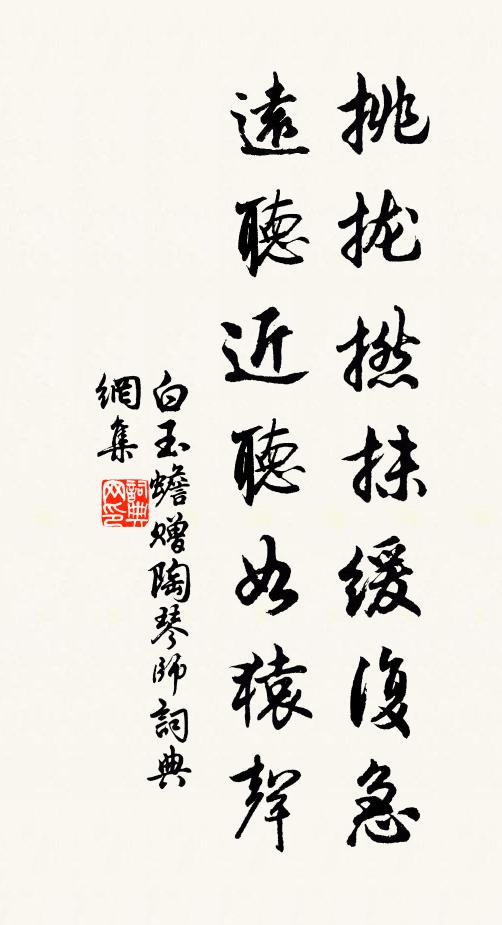 挑拢撚抹缓復急
遠聽近聽如猿聲
白玉蟾贈陶琴師詞典
網集
詞典
网印